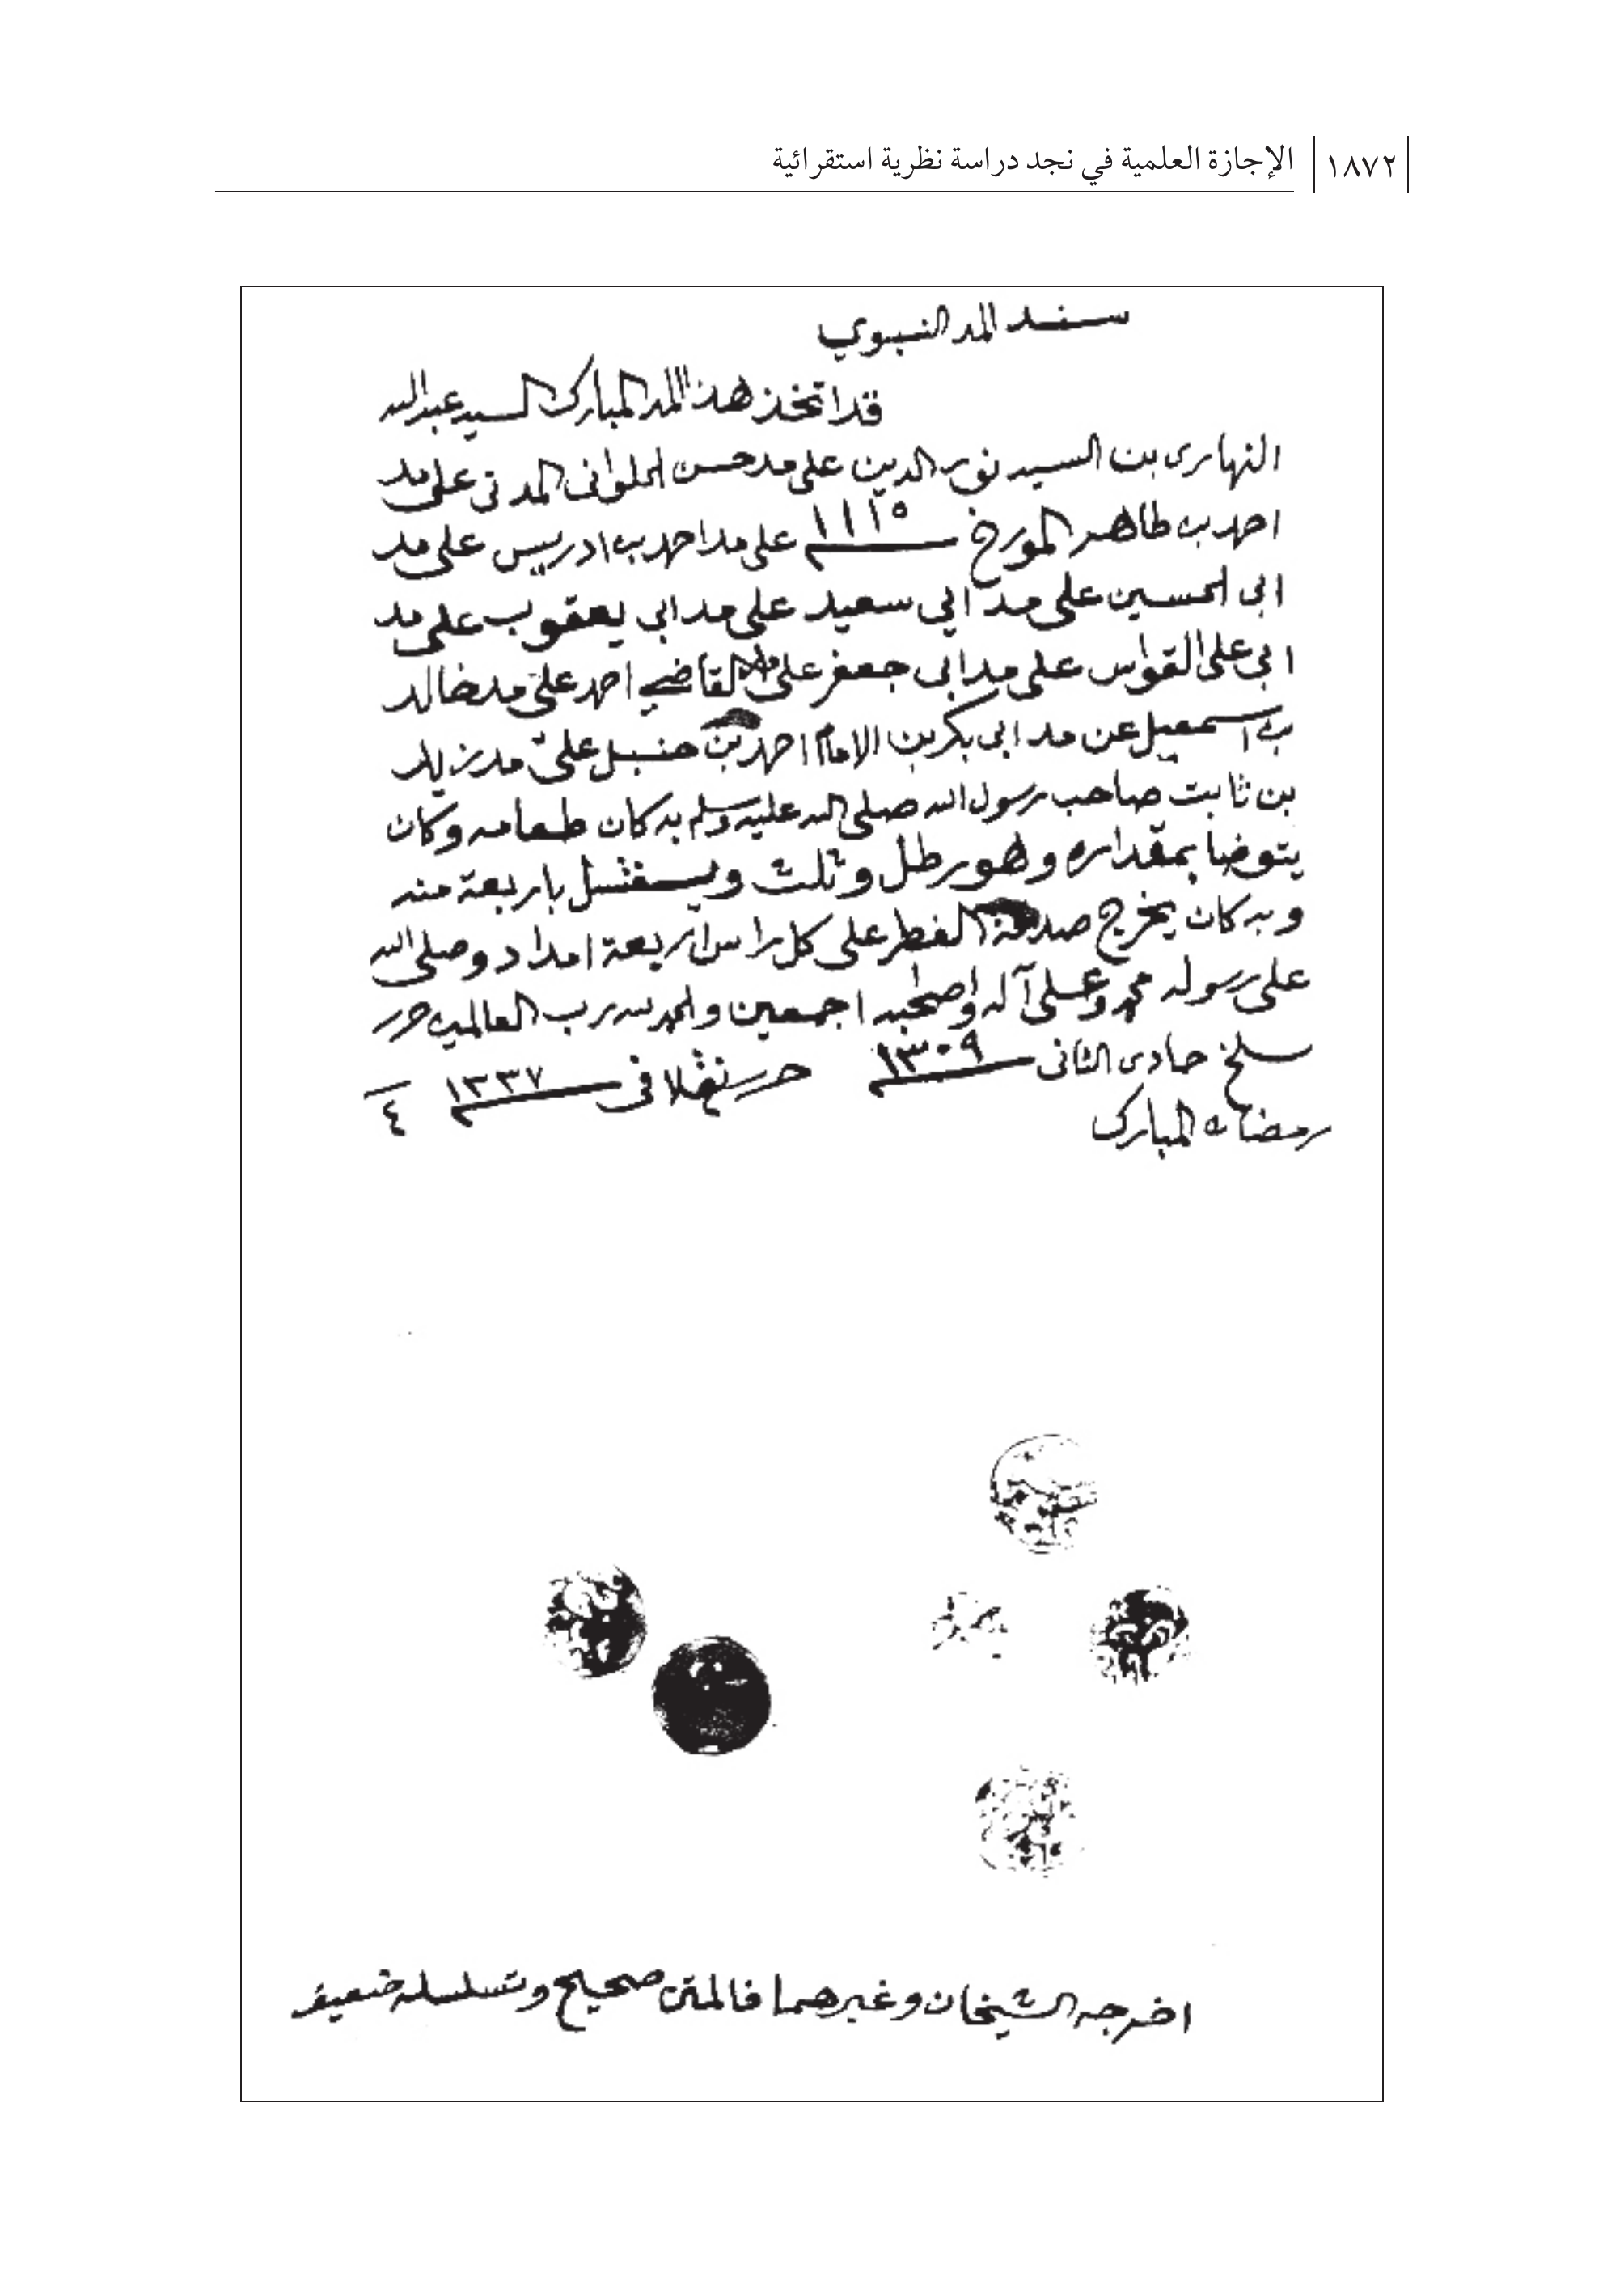 ١٨٧٢ الإجازة العلمية في نجد دراسة نظرية استقرائية
سند المد النبوي
قد اتخذ هذا المد المبارك السيد عبد الله
النهارى بن السيد نور الدين على مد حسن الحلوانى المدنى على مد
احمد بن طاهر المورخ ١١١٥ على مد احمد بن ادريس على مد
ابى الحسين على مد ابي سعيد على مد ابى يعقوب على مد
ابي على القواس على مد ابى جعفر على القاضي احمد على مد خالد
بن اسمعيل عن مد ابى بكر بن الامام احمد بن حنبل على مد زيد
بن ثابت صاحب رسول الله صلى الله عليه وسلم به كان طعامه وكان
يتوضا بمقداره وهو رطل وثلث ويغتسل باربعة منه
وبه كان يخرج صدقة الفطر على كل راس اربعة امداد وصلى الله
على رسوله محمد وعلى آله واصحبه اجمعين والحمد لله رب العالمين حرر
سلخ جمادى الثانى ١٣٠٩ حرر نقلا فى ١٣٣٧ ٤
رمضان المبارك
اخرجه الشيخان وغيرهما فالمتن صحيح وتسلسله ضعيف